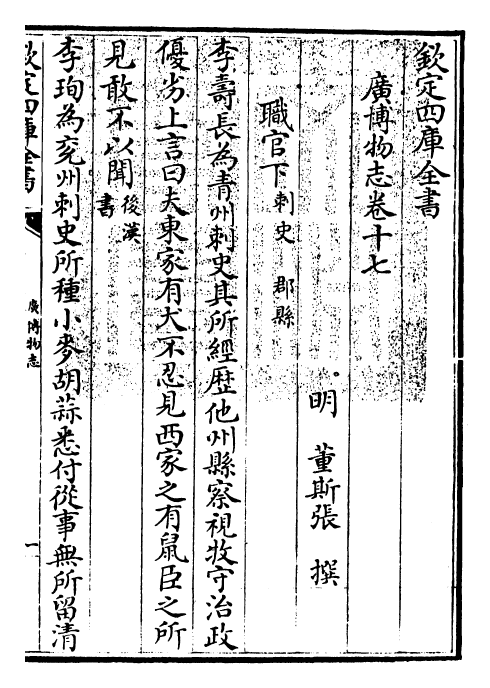 欽定四庫全書
廣博物志卷十七
明　董斯張　撰
職官下刺史　郡縣
李壽長為青州刺史其所經歷他州縣察視牧守治政
優劣上言曰夫東家有犬不忍見西家之有鼠臣之所
見敢不以聞後漢
書
李珣為兖州刺史所種小麥胡蒜悉付從事無所留清
欽定四庫全書
廣博物志
一